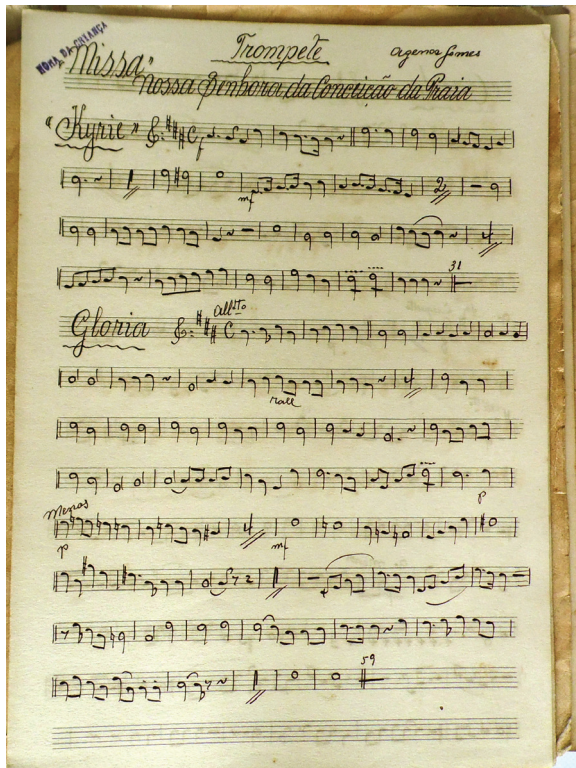 Trompete
Agenor Gomes
"Missa"
Nossa Senhora da Conceição da Praia
"Kyrie"
f
mf
2
4
31
Gloria
All.tto
rall
4
p
Menos
p
4
mf
59